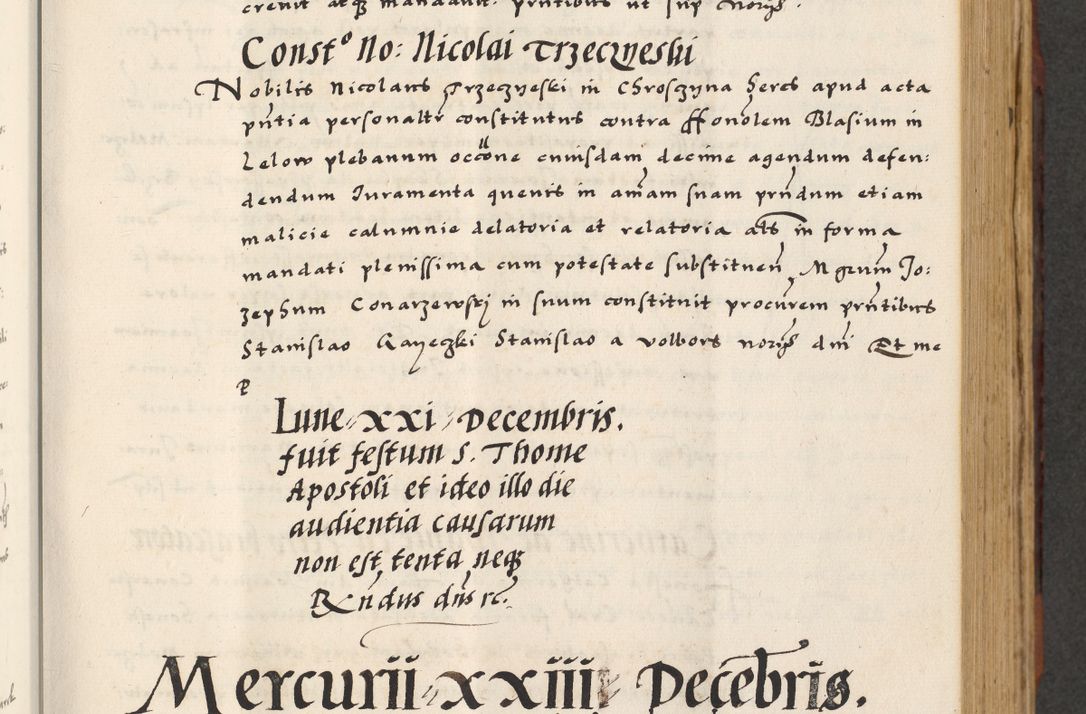 crevit atq̨ mandavit. pn̄tibus ut sup̄
Constᵒ No: Nicolai Trzeczyeski
Nobilis Nicolaus Trzeczyeski in Chroszyna heres apud acta
pn̄tia personalr̄ constitutus contra Honolem Blasium in
Lelow plebanum occōne cuiusdam decime agendum defen:
dendum Iuramenta quevis in am̄am suam prn̄dum etiam
malicie calumnie delatoria et relatoria als̄ in forma
mandati plenissima cum potestate substituen̄ Mgrum̄ Jo:
zephum Conarzewskj in suum constituit procūrem prn̄tibus
Stanislao Stanislao a volbors dn̄i Et me
Lune xxi Decembris.
fuit festum S. Thome
Apostoli et ideo illo die
audientia causarum
non est tenta neq̨
Rn̄dus dn̄s rc̄.
Mercurii xxiii Decēbris.